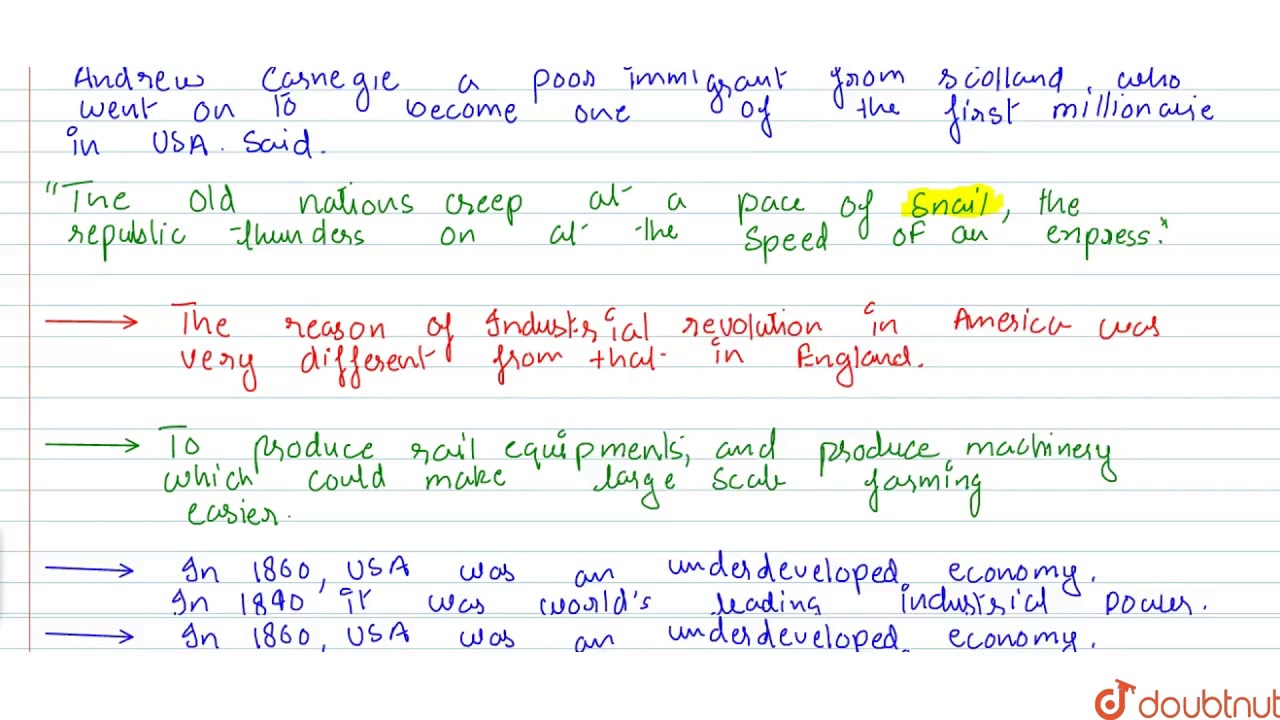 Andrew Carnegie a poor immigrant from scotland, who
went on to become one of the first millionaire
in USA. Said.
"The old nations creep at a pace of Snail, the
republic thunders on at the speed of an express."
→ The reason of Industrial revolution in America was
very different from that in England.
→ To produce rail equipments, and produce machinery
which could make large scale farming
easier.
→ In 1860, USA was an underdeveloped economy.
In 1890 it was world's leading industrial power.
→ In 1860, USA was an underdeveloped economy.
doubtnut